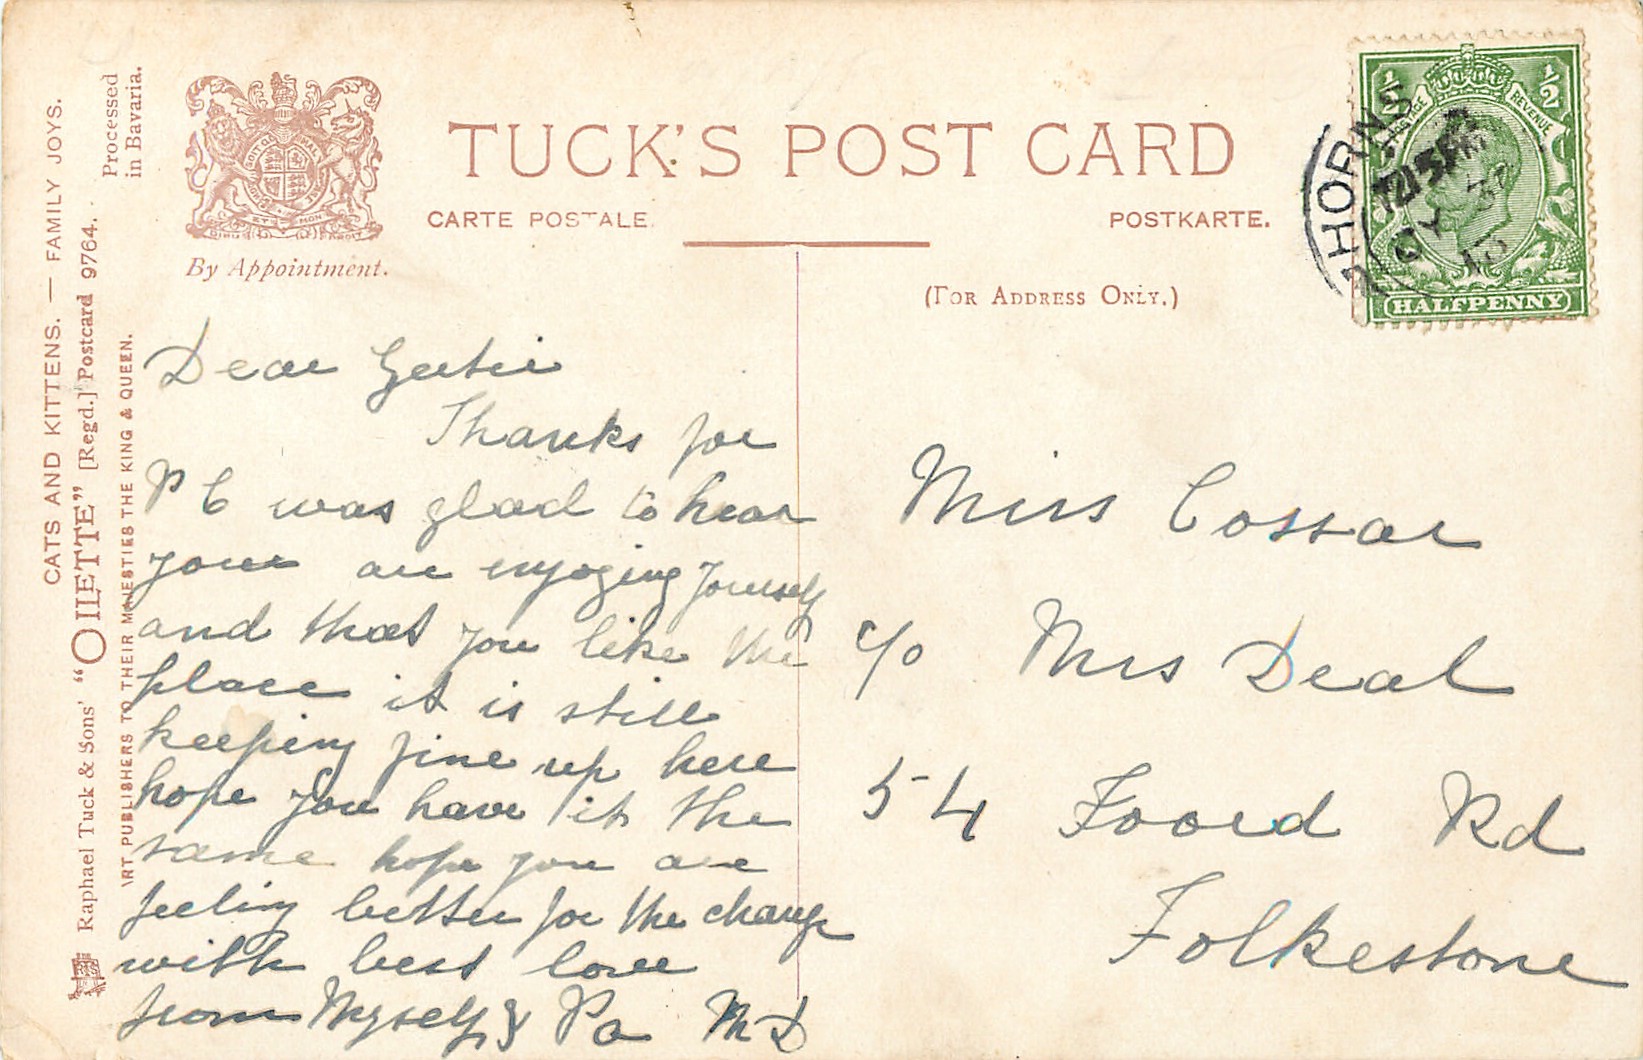 CATS AND KITTENS. — FAMILY JOYS.
Raphael Tuck & Sons' "OILETTE" [Regd.] Postcard 9764.
ART PUBLISHERS TO THEIR MAJESTIES THE KING & QUEEN.
Processed
in Bavaria.
By Appointment.
TUCK'S POST CARD
CARTE POSTALE.
POSTKARTE.
(FOR ADDRESS ONLY.)
1/2
POSTAGE
REVENUE
1/2
HALFPENNY
HORNS
Dear Gertie
Thanks for
P C was glad to hear
your are enjoying yourself
and that you like the
place it is still
keeping fine up here
hope you have it the
same hope you are
feeling better for the change
with best love
from Myself & Pa MD
Miss Cossar
c/o Mrs Deal
54 Foord Rd
Folkestone